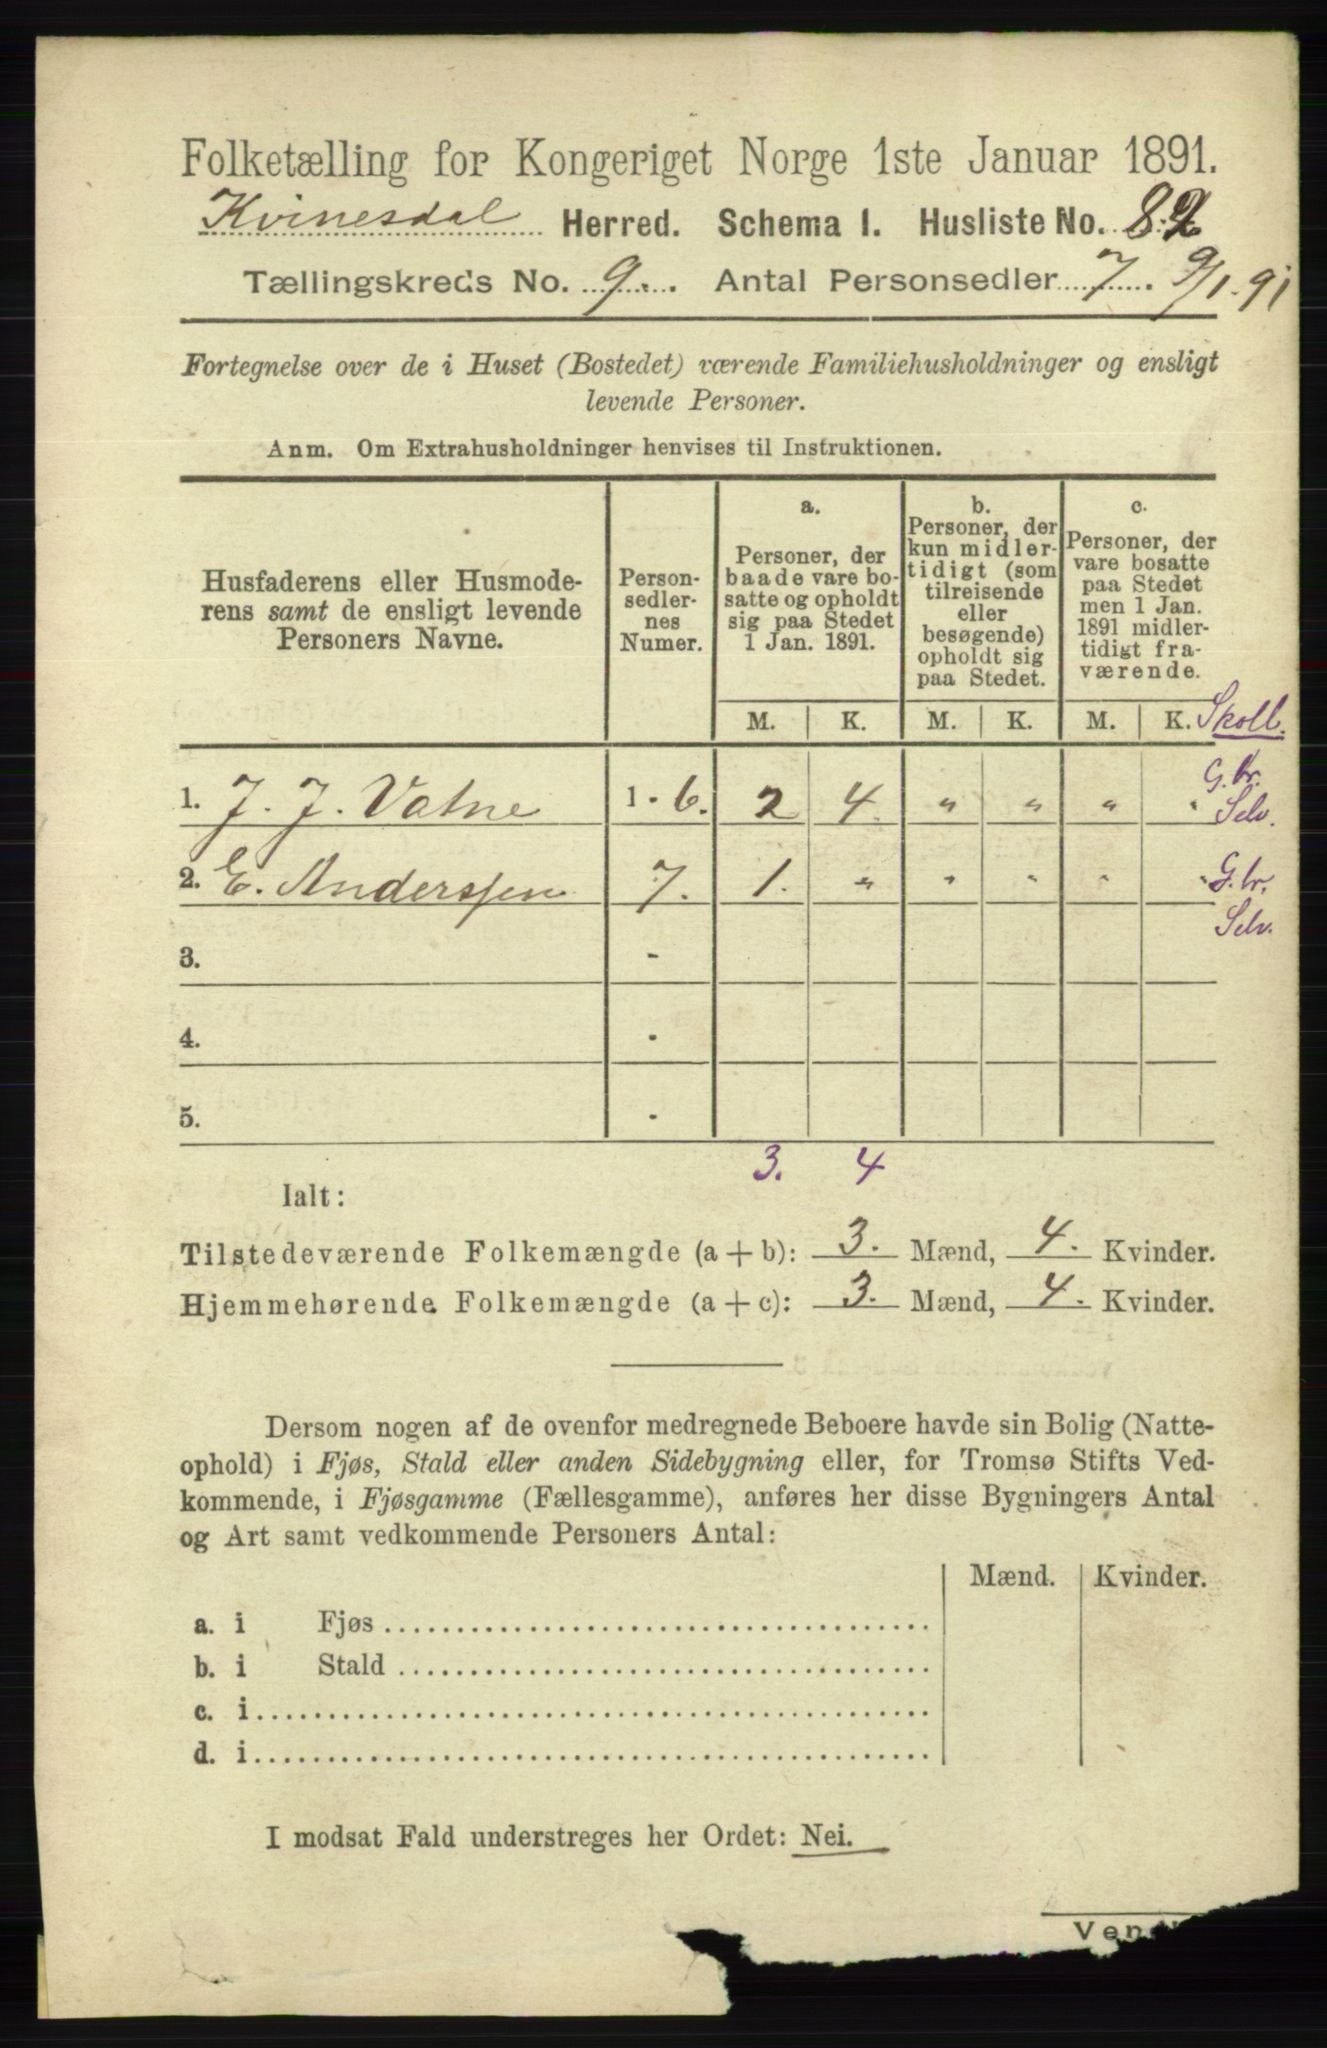 Folketælling for Kongeriget Norge 1ste Januar 1891.
Kvinesdal Herred. Schema I. Husliste No. 82
Tællingskreds No. 9. Antal Personsedler 7. 9/1.91
Fortegnelse over de i Huset (Bostedet) værende Familiehusholdninger og ensligt
levende Personer.
Anm. Om Extrahusholdninger henvises til Instruktionen.
Husfaderens eller Husmode-
rens samt de ensligt levende
Personers Navne.
Person-
sedler-
nes
Numer.
a.
Personer, der
baade vare bo-
satte og opholdt
sig paa Stedet
1 Jan. 1891.
b.
Personer, der
kun midler-
tidigt (som
tilreisende
eller
besøgende)
opholdt sig
paa Stedet.
c.
Personer, der
vare bosatte
paa Stedet
men 1 Jan.
1891 midler-
tidigt fra-
værende.
M. K. M. K. M. K. Skoll.
1. J. J. Vatne 1 - 6. 2 4. " " " " G.br. Selv.
2. E. Anderssen 7. 1. " " " " " G.br. Selv.
3. -
4. -
5. -
3. 4
Ialt:
Tilstedeværende Folkemængde (a + b): 3. Mænd, 4. Kvinder.
Hjemmehørende Folkemængde (a + c): 3. Mænd, 4. Kvinder.
Dersom nogen af de ovenfor medregnede Beboere havde sin Bolig (Natte-
ophold) i Fjøs, Stald eller anden Sidebygning eller, for Tromsø Stifts Ved-
kommende, i Fjøsgamme (Fællesgamme), anføres her disse Bygningers Antal
og Art samt vedkommende Personers Antal:
Mænd. Kvinder.
a. i Fjøs
b. i Stald
c. i
d. i
I modsat Fald understreges her Ordet: Nei.